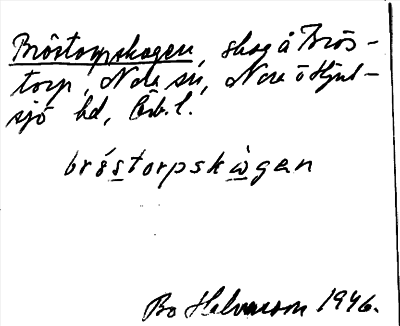 Bröstorpskogen, skog å Brös-
torp, Nora sn, Nora o Hjul-
sjö hd, Örb. l.
bròstorpskògan
Bo Halvarson 1946.